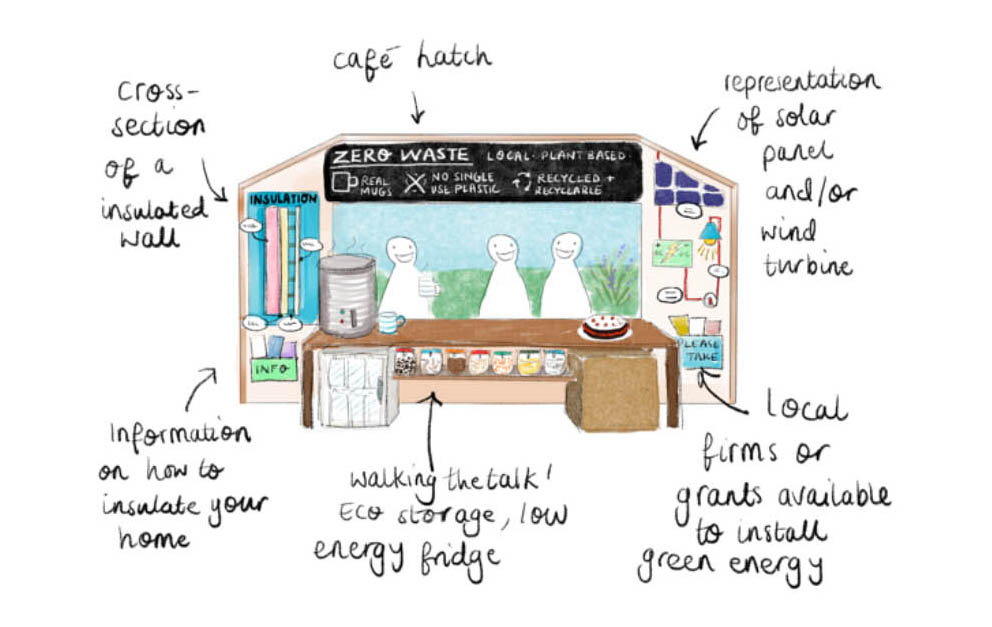 café hatch
cross-
section
of a
insulated
wall
representation
of solar
panel
and/or
wind
turbine
ZERO WASTE LOCAL · PLANT BASED ·
REAL
MUGS
NO SINGLE
USE PLASTIC
RECYCLED +
RECYCLABLE
INSULATION
INFO
PLEASE
TAKE
Information
on how to
insulate your
home
walking the talk!
Eco storage, low
energy fridge
Local
firms or
grants available
to install
green energy